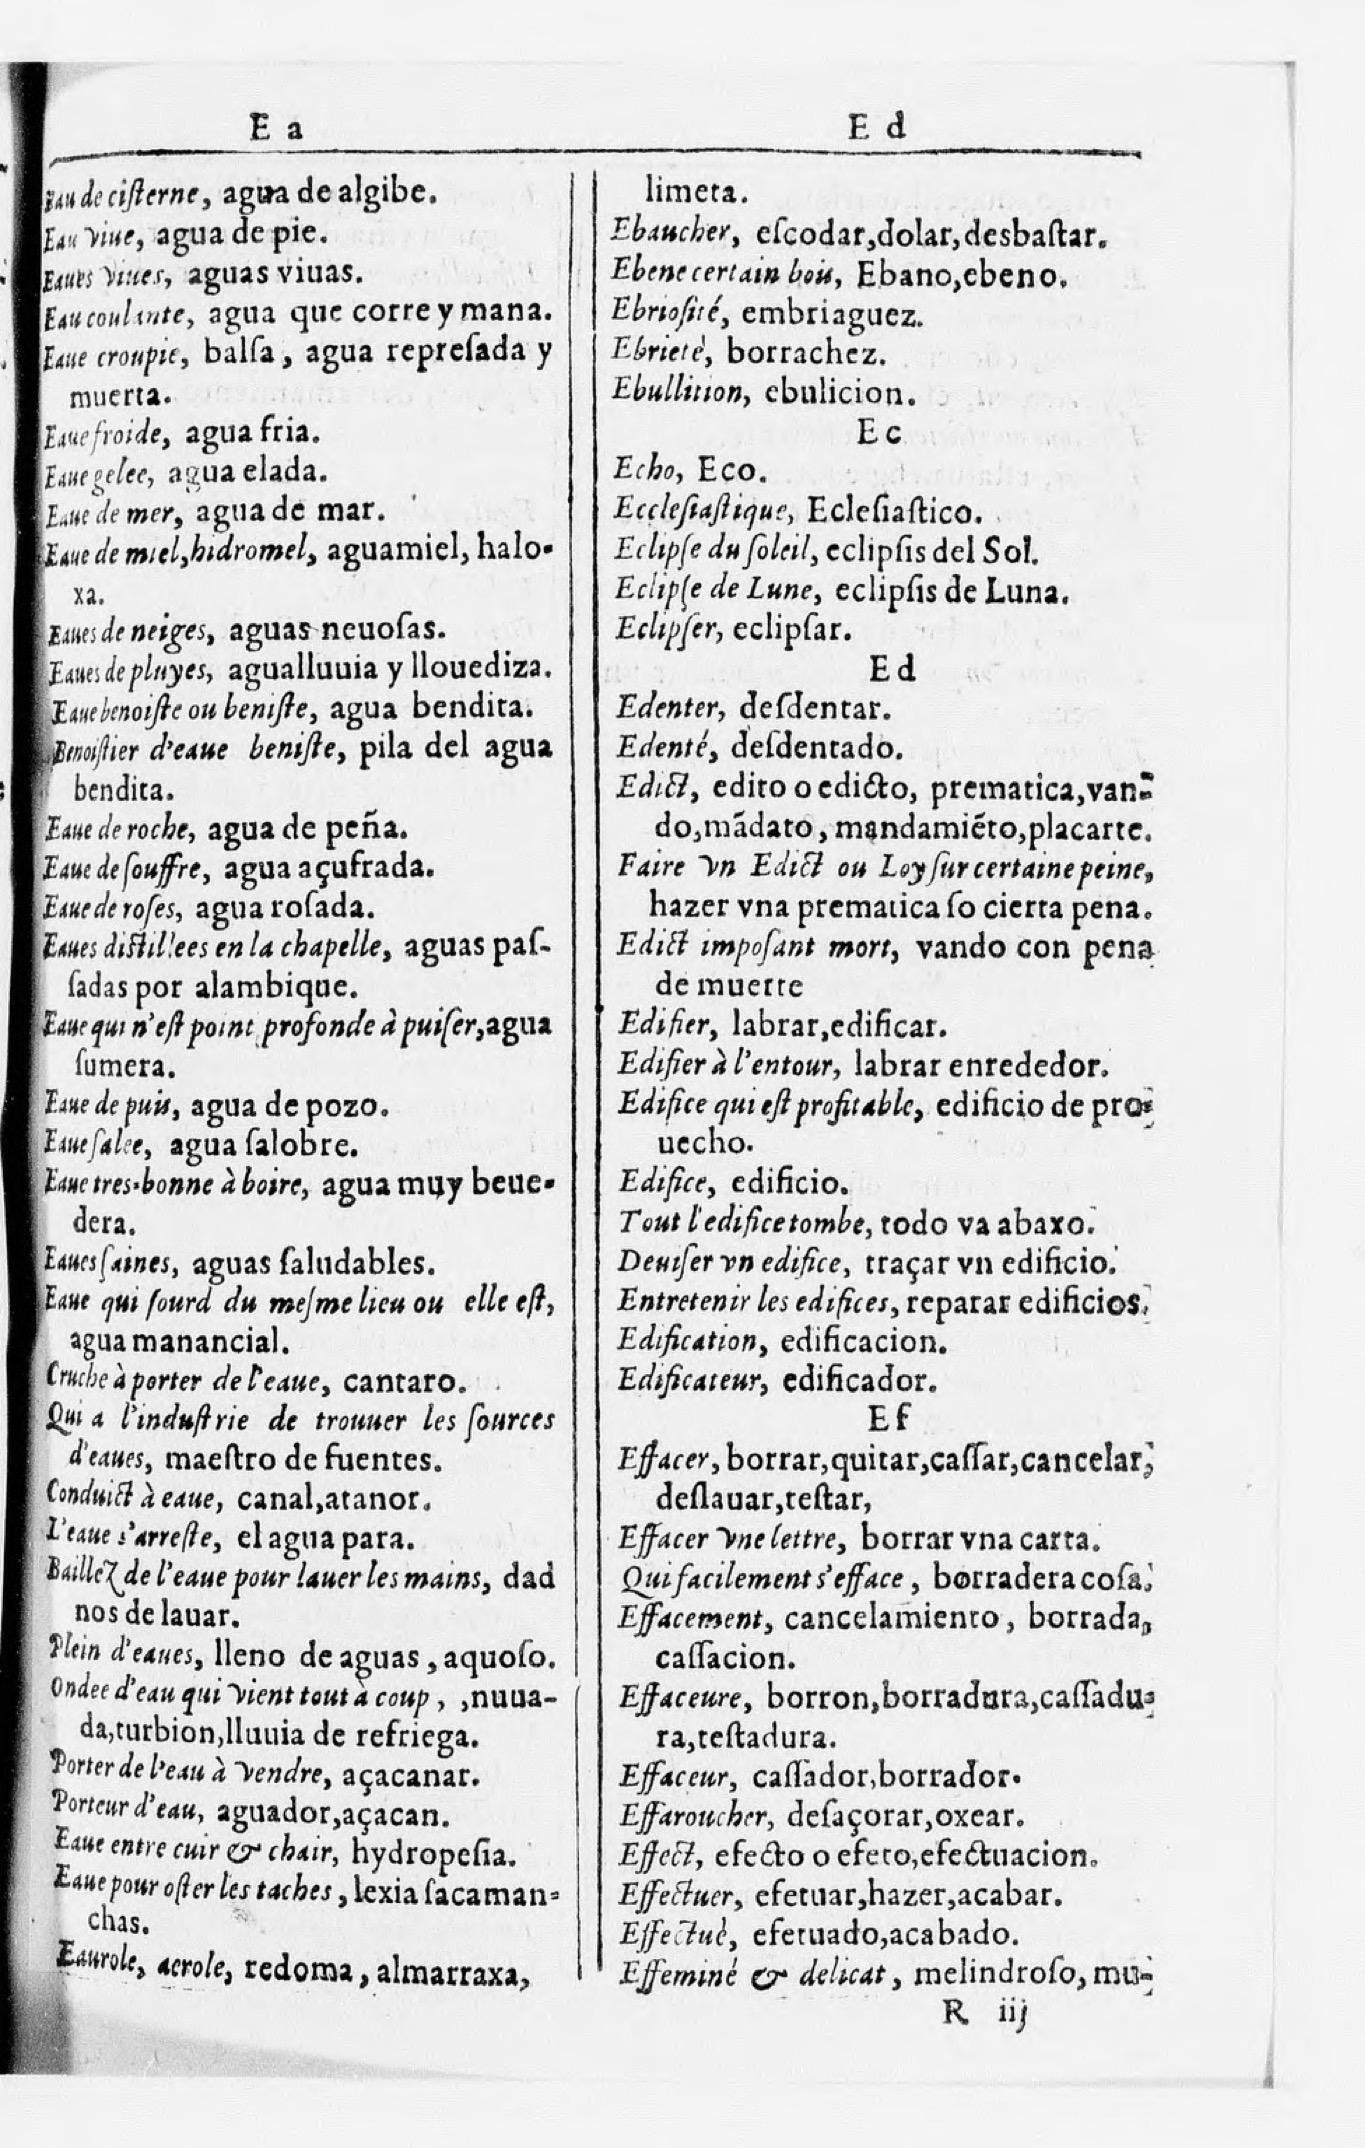 E a
Eau de ciſterne, agua de algibe.
Eau viue, agua de pie.
Eaues viues, aguas viuas.
Eau coulante, agua que corre y mana.
Eaue croupie, balſa, agua repreſada y
muerta.
Eaue froide, agua fria.
Eaue gelee, agua elada.
Eaue de mer, agua de mar.
Eaue de miel, hidromel, aguamiel, halo-
xa.
Eaues de neiges, aguas neuoſas.
Eaues de pluyes, agualluuia y llouediza.
Eaue benoiſte ou beniſte, agua bendita.
Benoiſtier d'eaue beniſte, pila del agua
bendita.
Eaue de roche, agua de peña.
Eaue de ſouffre, agua açufrada.
Eaue de roſes, agua roſada.
Eaues distillees en la chapelle, aguas paſ-
ſadas por alambique.
Eaue qui n'eſt point profonde à puiſer, agua
ſumera.
Eaue de puis, agua de pozo.
Eaue ſalee, agua ſalobre.
Eaue tres-bonne à boire, agua muy beue-
dera.
Eaues ſaines, aguas ſaludables.
Eaue qui ſourd du meſme lieu ou elle eſt,
agua manancial.
Cruche à porter de l'eaue, cantaro.
Qui a l'induſtrie de trouuer les ſources
d'eaues, maeſtro de fuentes.
Conduict à eaue, canal, atanor.
L'eaue s'arreſte, el agua para.
Baillez de l'eaue pour lauer les mains, dad
nos de lauar.
Plein d'eaues, lleno de aguas, aquoſo.
Ondee d'eau qui vient tout à coup, ,nuua-
da, turbion, lluuia de refriega.
Porter de l'eau à vendre, açacanar.
Porteur d'eau, aguador, açacan.
Eaue entre cuir & chair, hydropeſia.
Eaue pour oſter les taches, lexia ſacaman-
chas.
Eaurole, aerole, redoma, almarraxa,
E d
limeta.
Ebaucher, eſcodar, dolar, desbaſtar.
Ebene certain bois, Ebano, ebeno.
Ebrioſité, embriaguez.
Ebrietè, borrachez.
Ebullition, ebulicion.
E c
Echo, Eco.
Eccleſiaſtique, Ecleſiaſtico.
Eclipſe du ſoleil, eclipſis del Sol.
Eclipſe de Lune, eclipſis de Luna.
Eclipſer, eclipſar.
E d
Edenter, deſdentar.
Edenté, deſdentado.
Edict, edito o edicto, prematica, van-
do, mãdato, mandamiẽto, placarte.
Faire vn Edict ou Loy ſur certaine peine,
hazer vna prematica ſo cierta pena.
Edict impoſant mort, vando con pena
de muerte
Edifier, labrar, edificar.
Edifier à l'entour, labrar enrededor.
Edifice qui eſt profitable, edificio de pro-
uecho.
Edifice, edificio.
Tout l'edifice tombe, todo va abaxo.
Deuiſer vn edifice, traçar vn edificio.
Entretenir les edifices, reparar edificios.
Edification, edificacion.
Edificateur, edificador.
E f
Effacer, borrar, quitar, caſſar, cancelar,
deſlauar, teſtar,
Effacer vne lettre, borrar vna carta.
Qui facilement s'efface, borradera coſa.
Effacement, cancelamiento, borrada,
caſſacion.
Effaceure, borron, borradura, caſſadu-
ra, teſtadura.
Effaceur, caſſador, borrador.
Effaroucher, deſaçorar, oxear.
Effect, efecto o efeto, efectuacion.
Effectuer, efetuar, hazer, acabar.
Effectuè, efetuado, acabado.
Effeminé & delicat, melindroſo, mu-
R iij